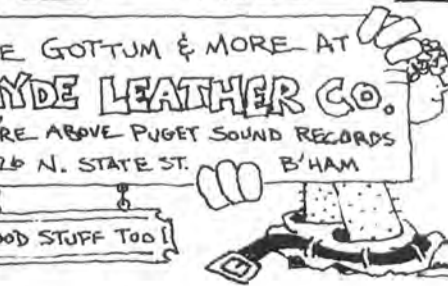 E GOTTUM & MORE AT
YDE LEATHER CO.
RE ABOVE PUGET SOUND RECORDS
26 N. STATE ST. B'HAM
OOD STUFF TOO!